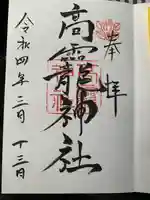 奉拝
高龗神社
令和四年三月十三日